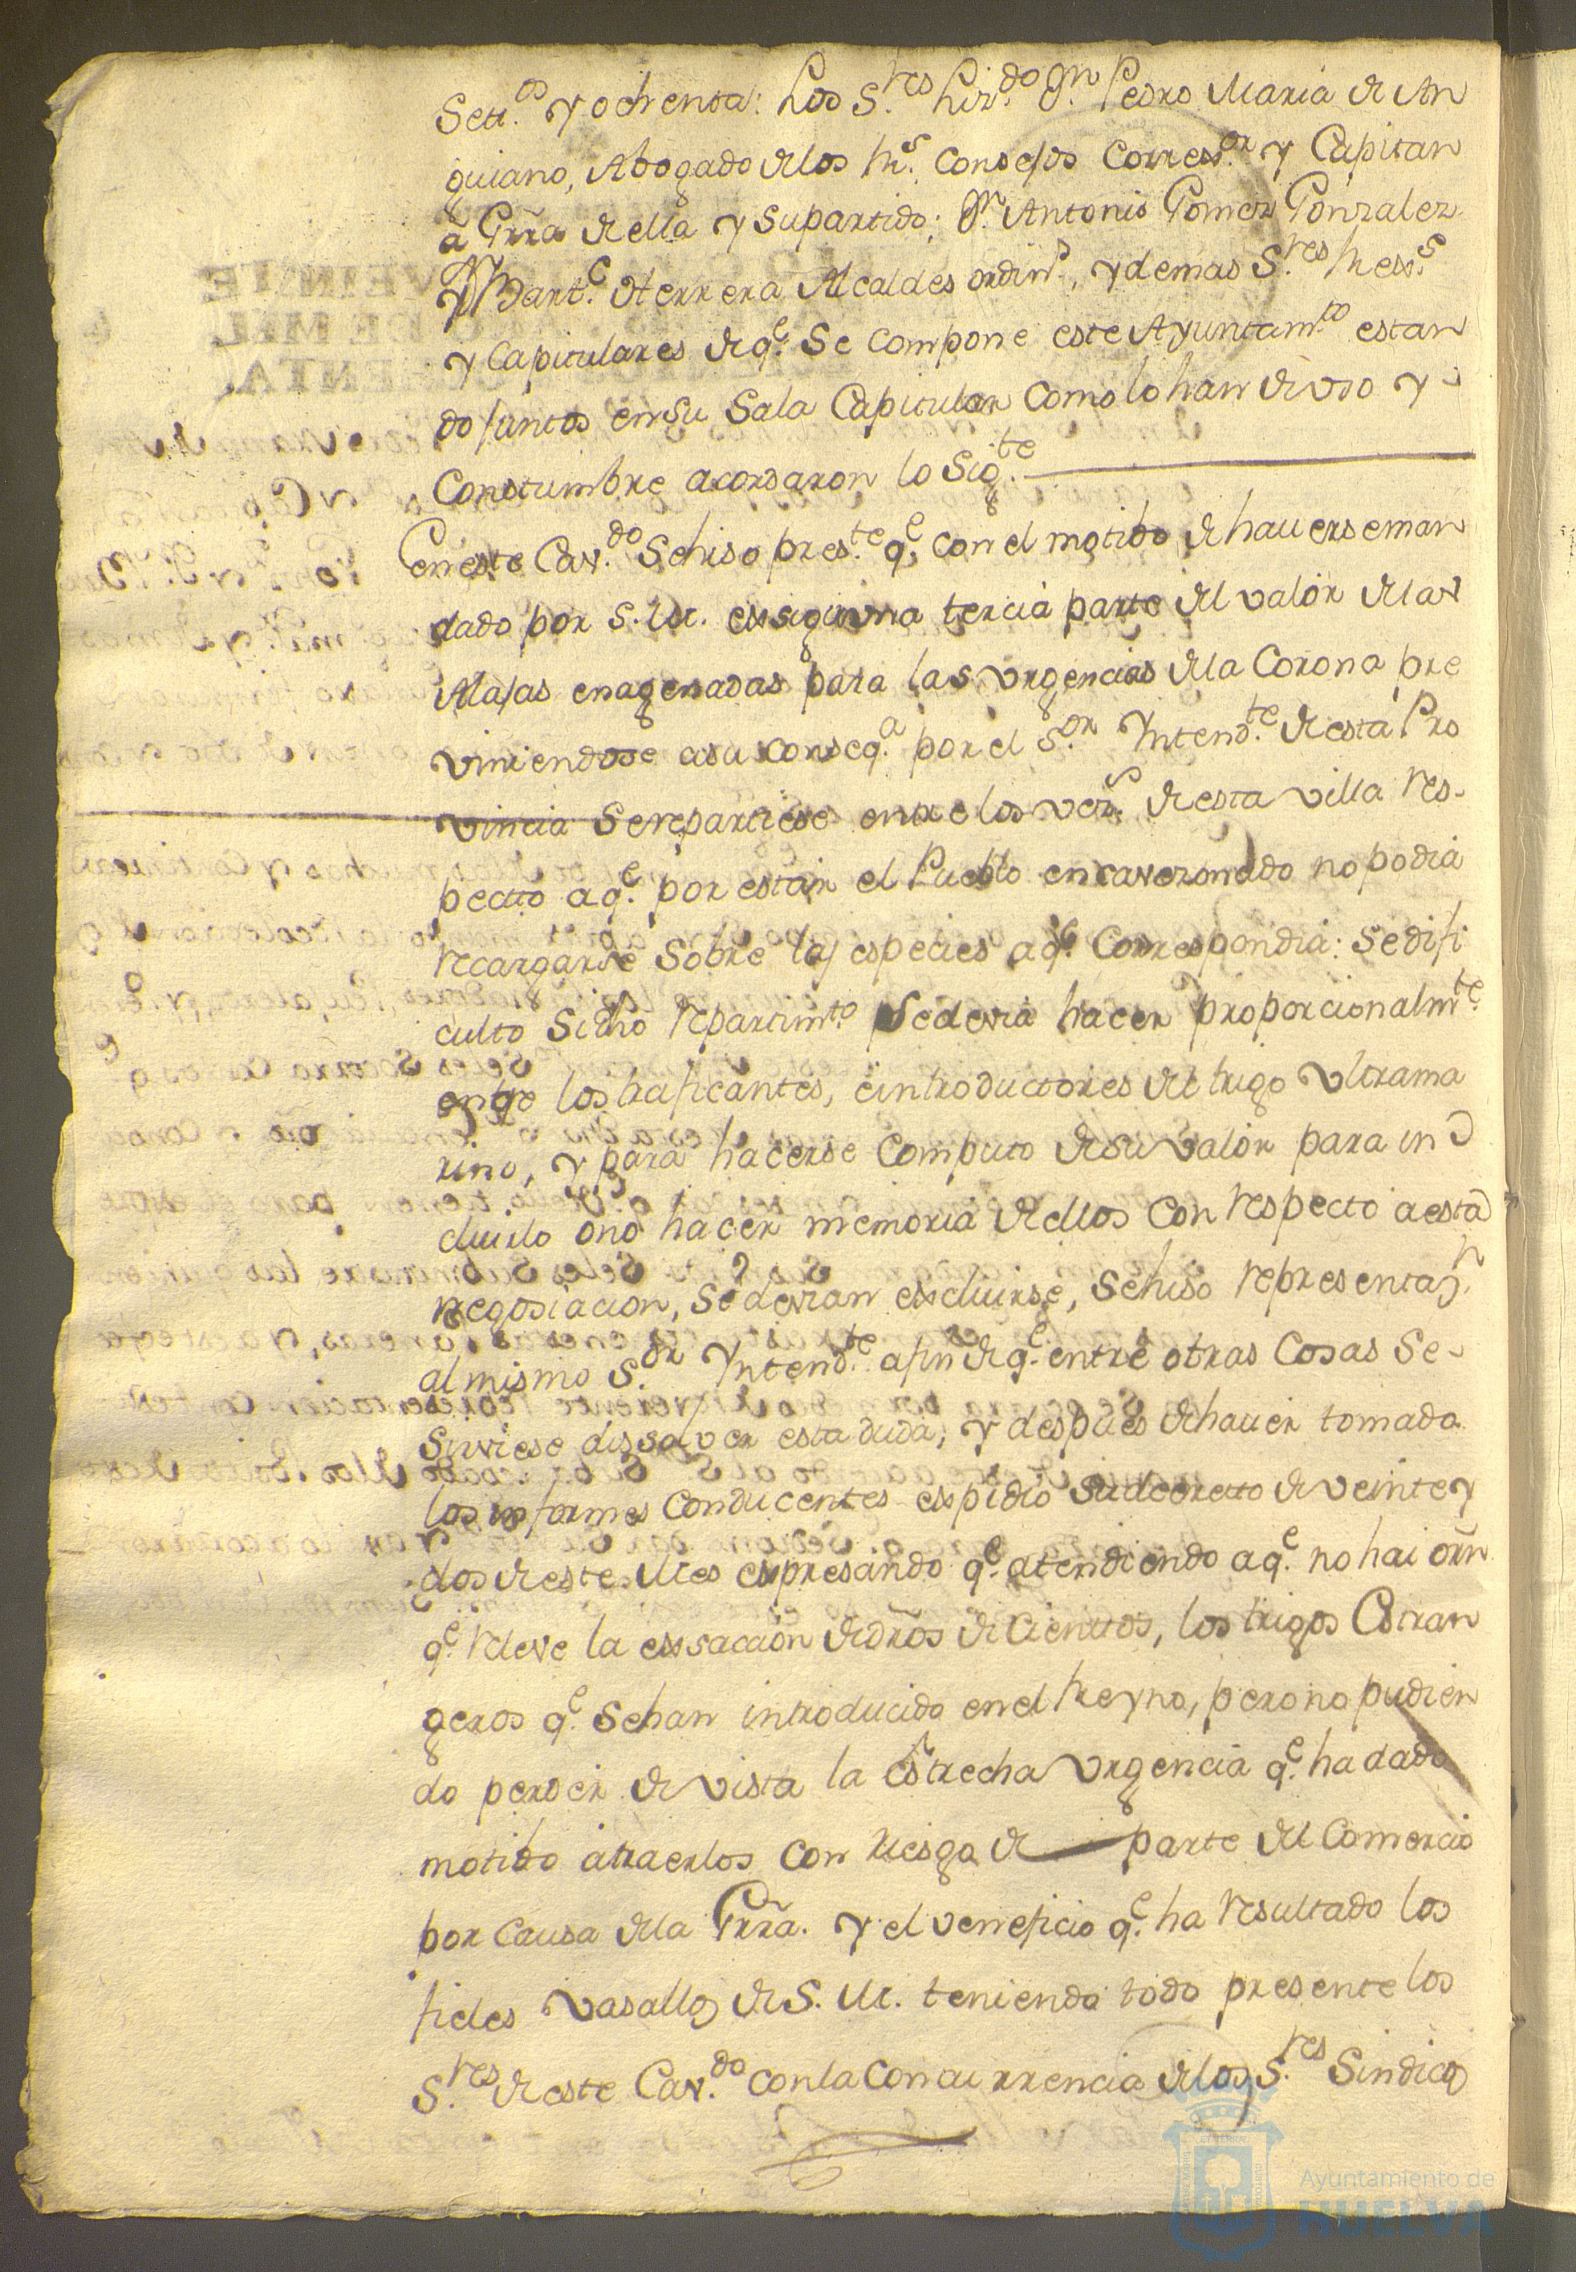 Sett.os y ochenta: Los S.res Liz.do Dn Pedro Maria de An
guiano, Abogado de los Rs. Consejos Corress.or y Capitan
a Grra de ella y su partido; Dn Antonio Gomez Gonzalez
y Dn Bart.e Herrera Alcaldes ordin.s, y demas S.res Rexs.s
y Capitulares de q.e se compone este Ayuntam.to estan
do juntos en su Sala Capitular como lo han de uso y
Constumbre acordaron lo Sig.te
En este Cav.do se hiso pres.te q.e con el motibo de haverse man
dado por S. M. exsigir una tercia parte del valor de las
Alajas enagenadas para las urgencias de la Corona pre
viniendose a su conseq.a por el S.or Yntend.te de esta Pro
vincia se repartiese entre los vez.s de esta villa res-
pecto a q.e por estar el Pueblo encavezonado no podia
recargarse sobre las especies a q.e correspondia: se difi
culto si dho repartim.to se devia hacer proporcionalm.te
entre los traficantes, e introductores del trigo ultrama
rino, y para hacerse computo de su valor para in
cluirlo o no hacer memoria de ellos con respecto a esta
negosiacion, se devian excluirse, se hiso representaz.n
al mismo S.or Yntend.te a fin de q.e entre otras cosas se
sirviese dissolver esta duda; y despues de haver tomado
los informes conducentes expidio su decreto de veinte y
dos de este Mes expresando q.e atendiendo a q.e no hai orn
q.e releve la exsaccion de dros de Cientos, los trigos Estran
geros q.e se han introducido en el Reyno, pero no pudien
do perder de vista la estrecha urgencia q.e ha dado
motibo a traerlos con riesgo de parte del Comercio
por causa de la Grra. y el veneficio q.e ha resultado los
fieles vasallos de S. M. teniendo todo presente los
S.res de este Cav.do con la concurrencia de los S.res Sindicos
Ayuntamiento de
HUELVA